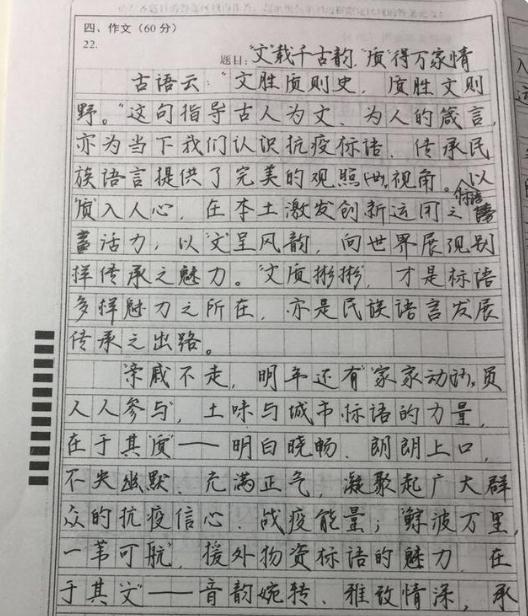 四、作文(60分)
22.
题目:"文"载千古韵 "质"得万家情
古语云:"文胜质则史,质胜文则
野。"这句指导古人为文、为人的箴言,
亦为当下我们认识抗疫标语、传承民
族语言提供了完美的观照视角。以
"质"入人心,在本土激发创新运用之标语
活力,以"文"呈风韵,向世界展现别
样传承之魅力。"文质彬彬",才是标语
多样魅力之所在,亦是民族语言发展
传承之出路。
"亲戚不走,明年还有""家家动员,
人人参与",土味与城市标语的力量,
在于其"质"——明白晓畅、朗朗上口,
不失幽默、充满正气,凝聚起广大群
众的抗疫信心、战疫能量;"鲸波万里,
一苇可航",援外物资标语的魅力,在
于其"文"——音韵婉转、雅致情深,承